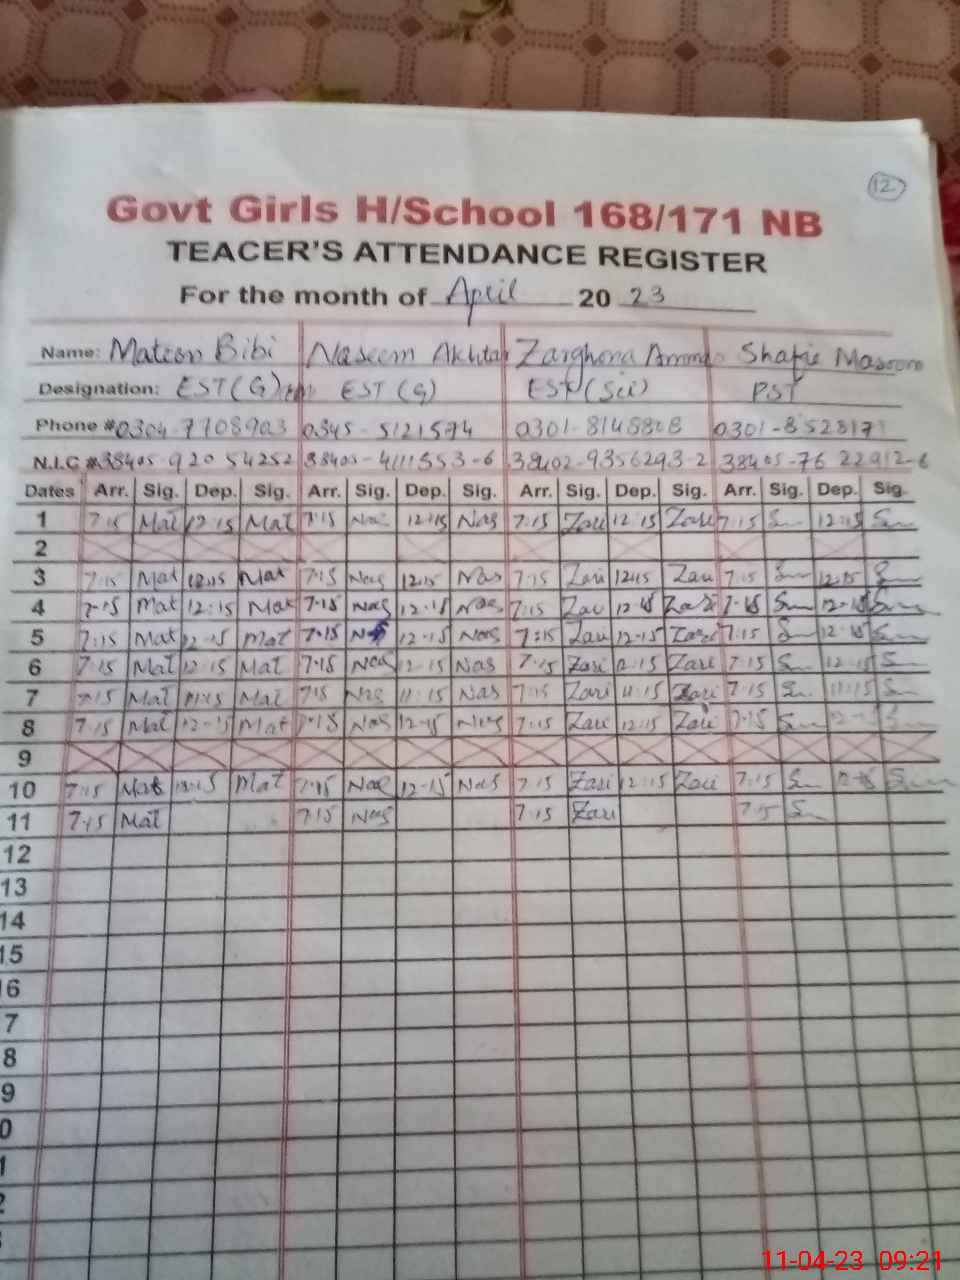 12
Govt Girls H/School 168/171 NB
TEACER'S ATTENDANCE REGISTER
For the month of April 20 23
Name: Mateen Bibi Naseem Akhtar Zarghona Shafie Masoom
Designation: EST(G) EST (G) EST (Sci) PST
Phone # 0304-7708903 0345-5121574 0301-8148808 0301-8528171
N.I.C # 38405-920 54252 38403-4111553-6 38402-9356293-2 38405-76 22912-6
Dates Arr. Sig. Dep. Sig. Arr. Sig. Dep. Sig. Arr. Sig. Dep. Sig. Arr. Sig. Dep. Sig.
1 7:15 Mat 12:15 Mat 7:15 Nas 12:15 Nas 7:15 Zari 12:15 Zari 7:15 12:15
2
3 7:15 Mat 12:15 Mat 7:15 Nas 12:15 Nas 7:15 Zari 12:15 Zari 7:15 12:15
4 7:15 Mat 12:15 Mat 7:15 Nas 12:15 Nas 7:15 Zari 12:15 Zari 7:15 12:15
5 7:15 Mat 12:15 Mat 7:15 Nas 12:15 Nas 7:15 Zari 12:15 Zari 7:15 12:15
6 7:15 Mat 12:15 Mat 7:15 Nas 12:15 Nas 7:15 Zari 12:15 Zari 7:15 12:15
7 7:15 Mat 11:15 Mat 7:15 Nas 11:15 Nas 7:15 Zari 11:15 Zari 7:15 11:15
8 7:15 Mat 12:15 Mat 7:15 Nas 12:15 Nas 7:15 Zari 12:15 Zari 7:15
9
10 7:15 Mat 12:15 Mat 7:15 Nas 12:15 Nas 7:15 Zari 12:15 Zari 7:15 12:15
11 7:15 Mat 7:15 Nas 7:15 Zari 7:15
12
13
14
15
6
7
8
9
0
1
2
11-04-23 09:21